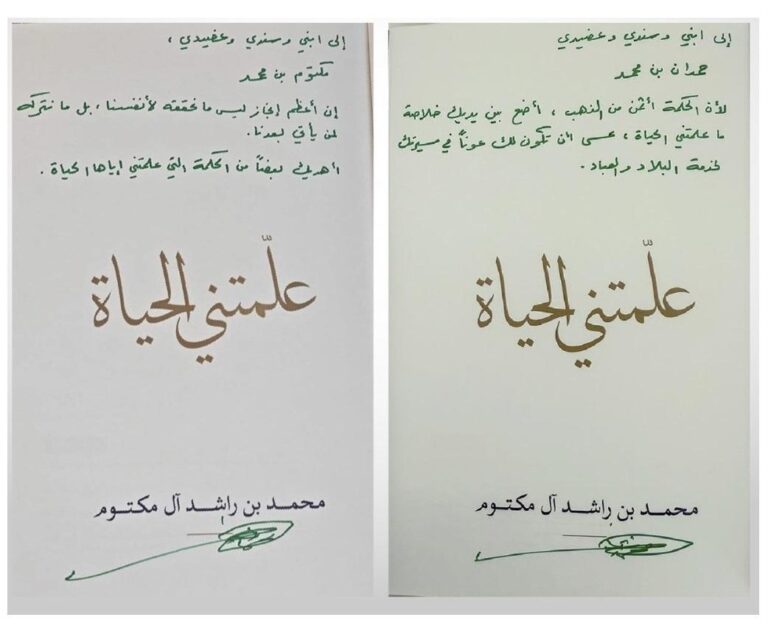 إلى ابني وسندي وعضيدي ،
مكتوم بن محمد
إن أعظم إنجاز ليس ما نحققه لأنفسنا ، بل ما نتركه
لمن يأتي بعدنا .
أهديك بعضاً من الحكمة التي علمتني إياها الحياة .
علّمتني الحياة
محمد بن راشد آل مكتوم
إلى ابني وسندي وعضيدي
حمدان بن محمد
لأن الحكمة أثمن من الذهب ، أضع بين يديك خلاصة
ما علمتني الحياة ، عسى أن تكون لك عوناً في مسيرتك
لخدمة البلاد والعباد .
علّمتني الحياة
محمد بن راشد آل مكتوم